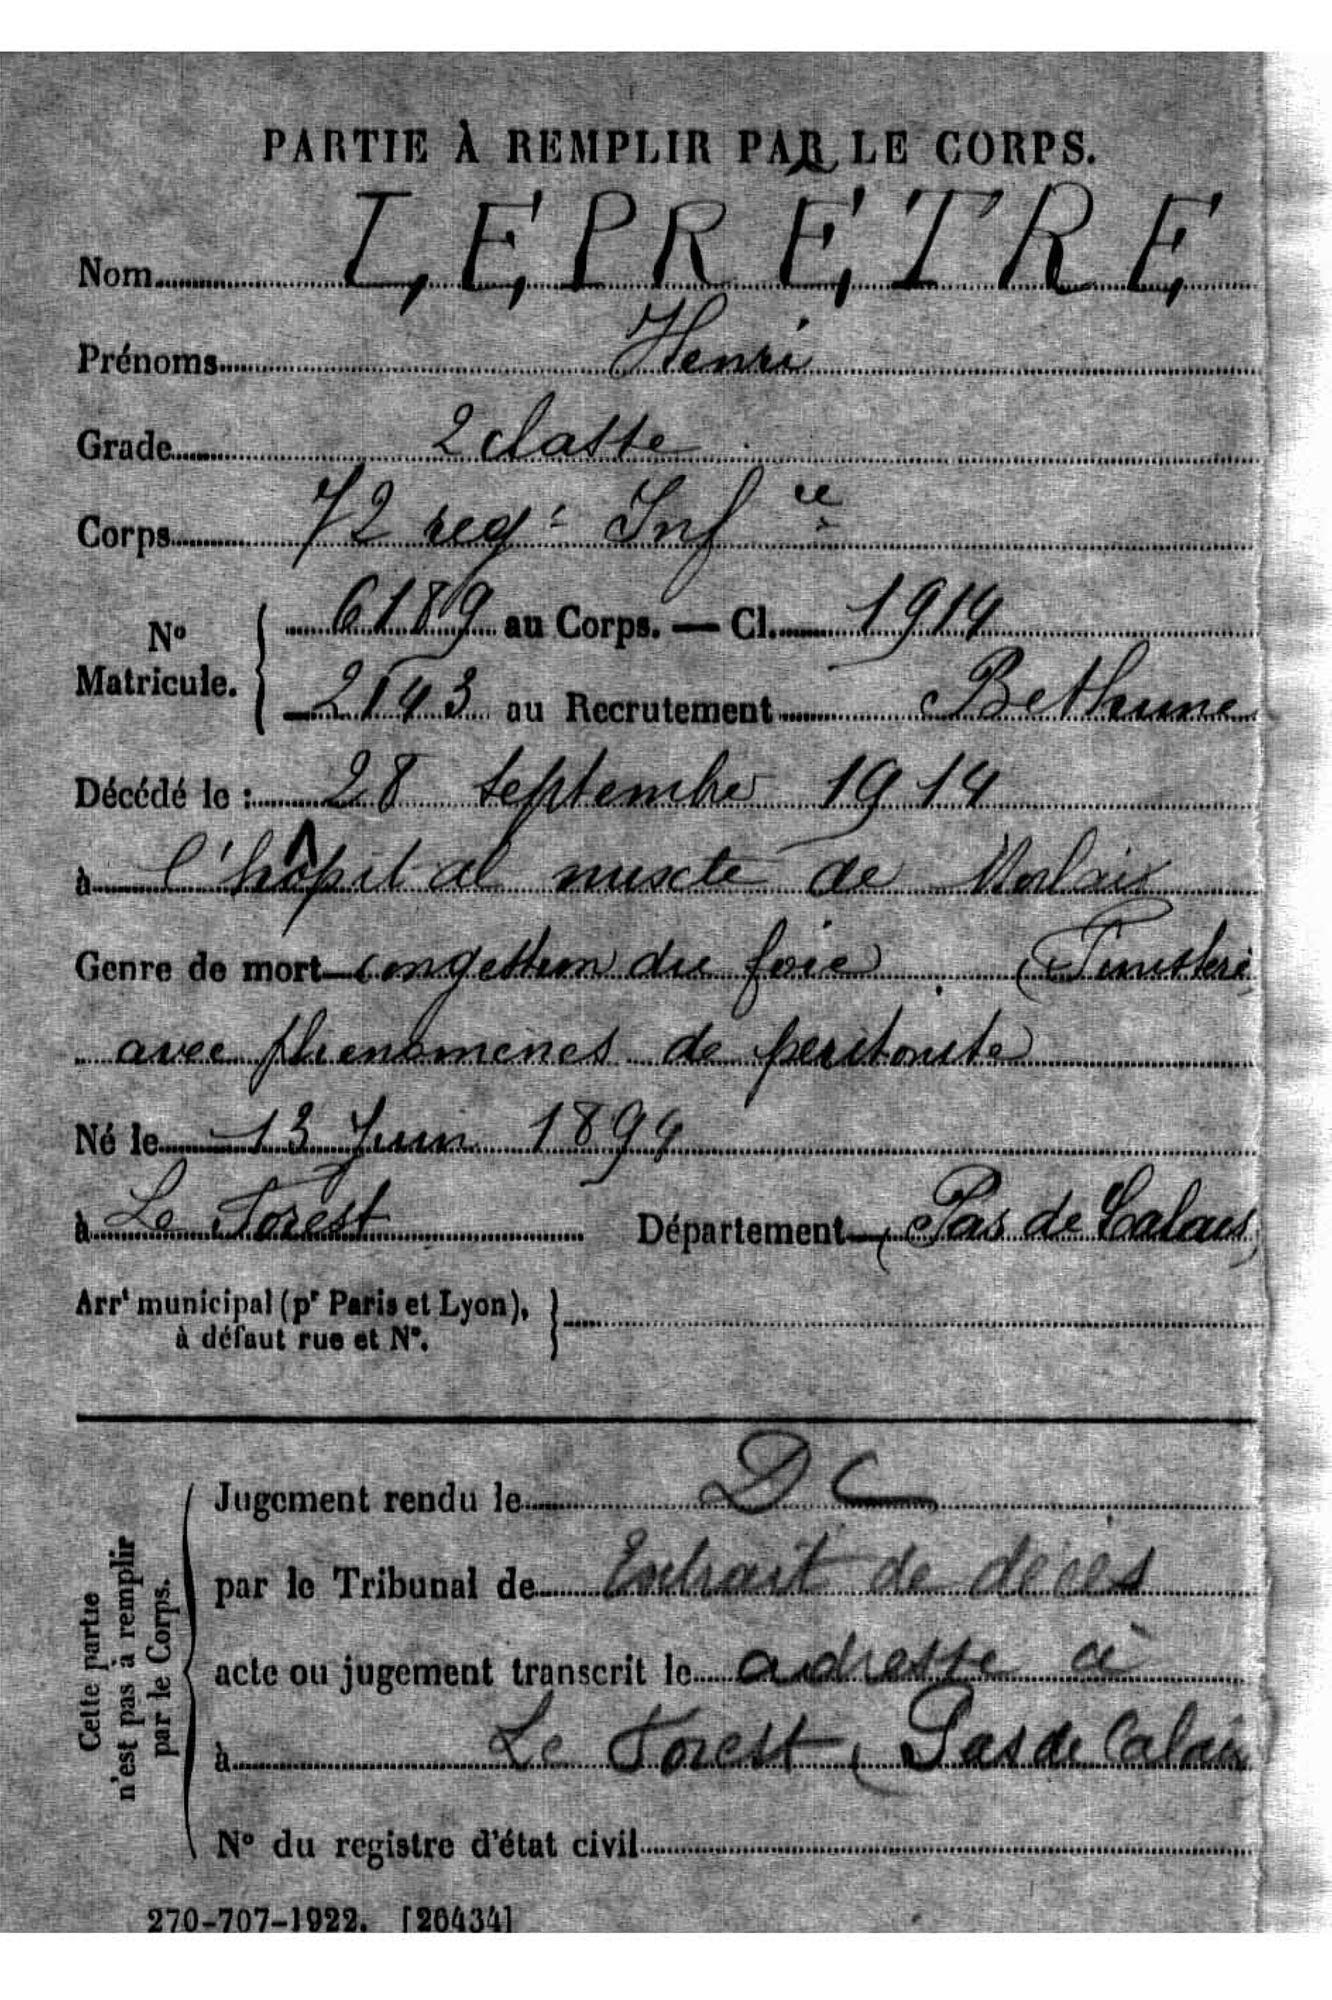 PARTIE À REMPLIR PAR LE CORPS.
Nom LEPRÊTRE
Prénoms Henri
Grade 2 classe
Corps 72 reg^t Inf^ie
N° Matricule. 6189 au Corps. — Cl. 1914
2143 au Recrutement Bethune
Décédé le : 28 septembre 1914
à l'hôpital mixte de Morlaix
Genre de mort congestion du foie (Finistère
avec phenomènes de peritonite
Né le 13 Juin 1894
à Le Forest Département (Pas de Calais)
Arr^t municipal (p^r Paris et Lyon),
à défaut rue et N°.
Cette partie
n'est pas à remplir
par le Corps.
Jugement rendu le DC
par le Tribunal de Extrait de décès
acte ou jugement transcrit le adresse à
à Le Forest (Pas de Calais
N° du registre d'état civil
270-707-1922. [26434]